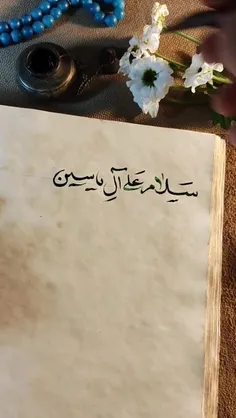 سَلامٌ عَلی آلِ یاسین